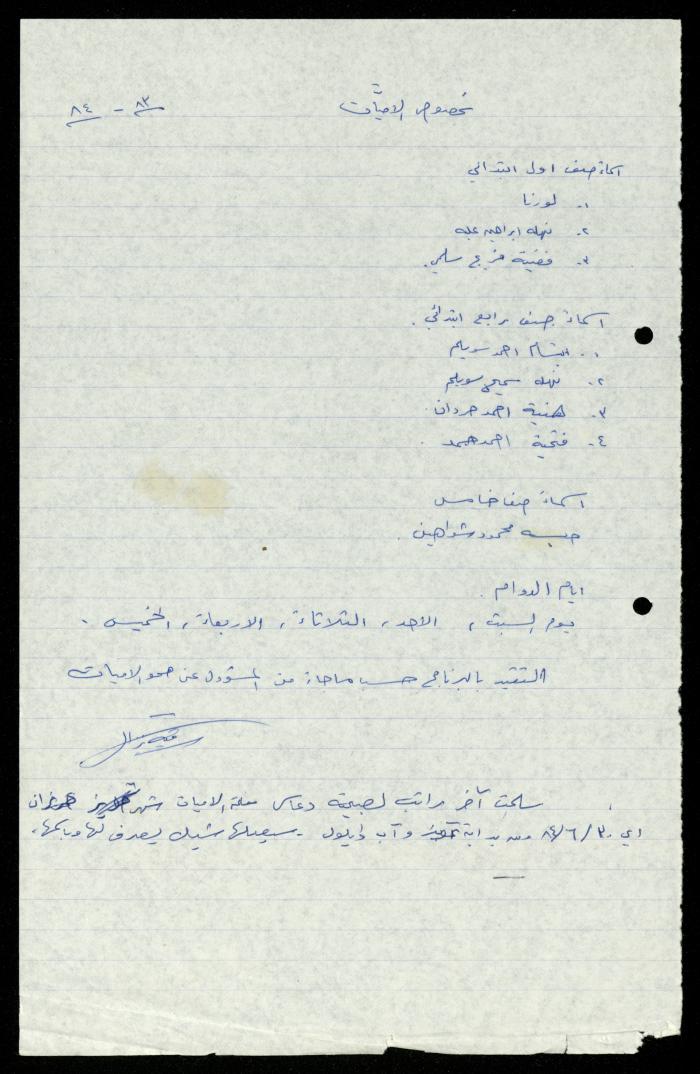 بخصوص الاميّات ٨٣ - ٨٤
اسماء صف اول ابتدائي
١. لورنا
٢. نهله ابراهيم عليه
٣. فضية فريج سلمي.
اسماء صف رابع ابتدائي.
١. ابتسام احمد سويلم
٢. نهله سميح سويلم
٣. هنية احمد حردان.
٤. فتحية احمد حمد.
اسماء صف خامس
حبسه محمود شواهين.
ايام الدوام.
يوم السبت، الاحد، الثلاثاء، الاربعاء، الخميس.
التقيد بالبرنامج حسب ما جاء من المسؤول عن محو الاميات
سلمت آخر راتب لصبحة دعاس معلمة الاميات شهر حزيران
اي ٣٠/٦/٨٤ ومن بداية تموز و آب وايلول - سيعطلها شيك يصرف لها وباسمها.